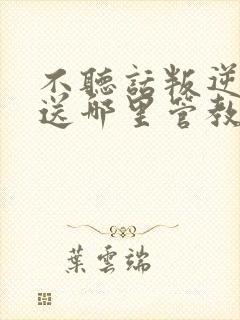 不聽話叛逆
送哪里管教
葉雲端